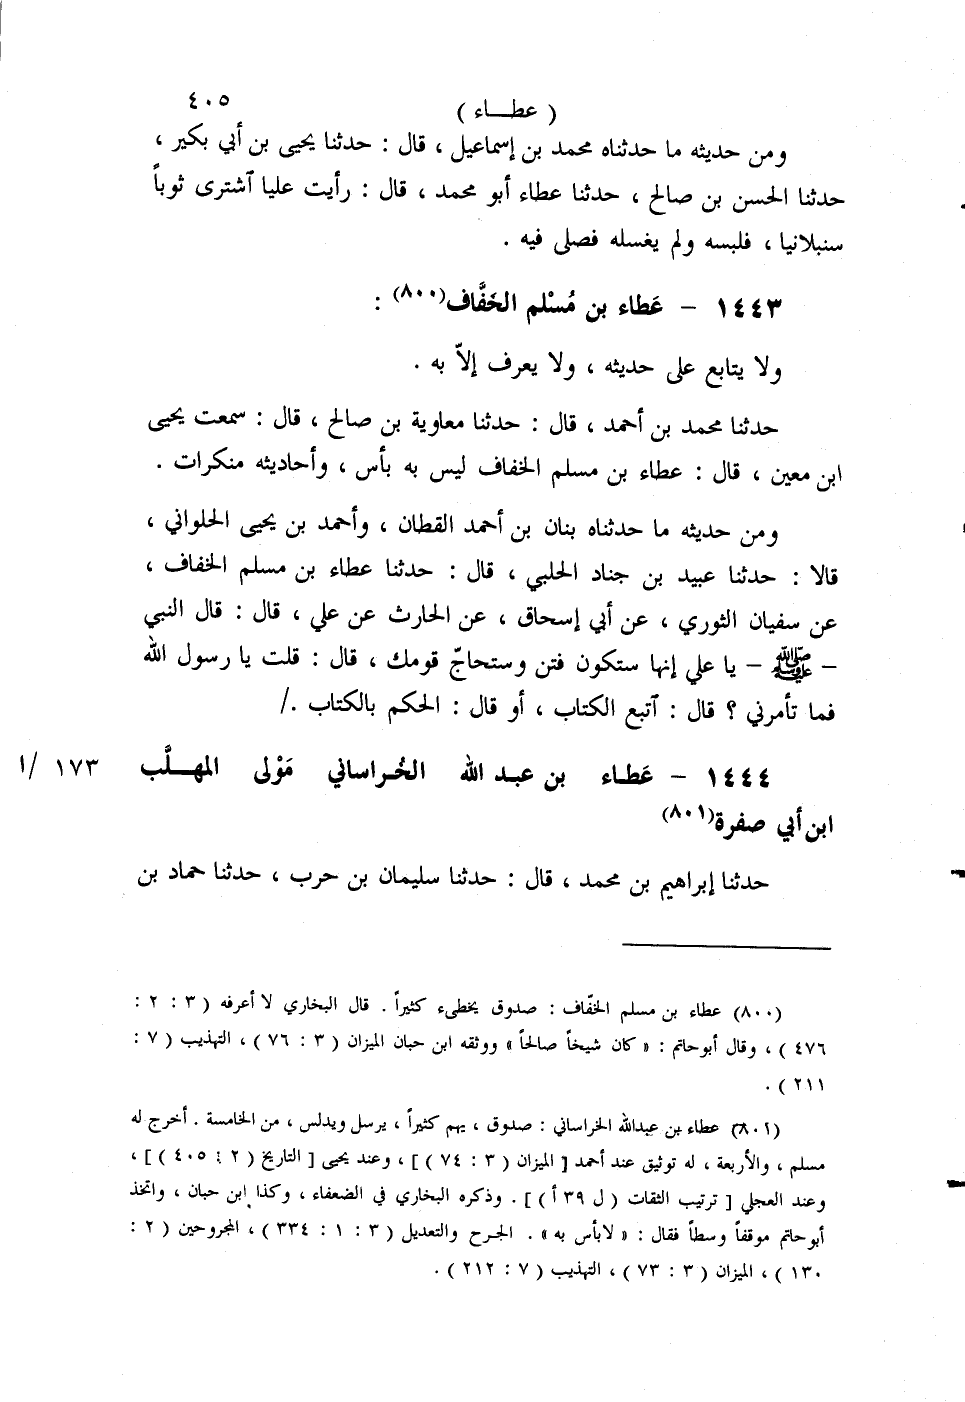 ( عطـــاء ) ٤٠٥
ومن حديثه ما حدثناه محمد بن إسماعيل ، قال : حدثنا يحيى بن أبي بكير ،
حدثنا الحسن بن صالح ، حدثنا عطاء أبو محمد ، قال : رأيت عليا آشترى ثوباً
سنبلانيا ، فلبسه ولم يغسله فصلى فيه .
١٤٤٣ – عَطاء بن مُسْلم الخَفَّاف(٨٠٠) :
ولا يتابع على حديثه ، ولا يعرف إلاّ به .
حدثنا محمد بن أحمد ، قال : حدثنا معاوية بن صالح ، قال : سمعت يحيى
ابن معين ، قال : عطاء بن مسلم الخفاف ليس به بأس ، وأحاديثه منكرات .
ومن حديثه ما حدثناه بنان بن أحمد القطان ، وأحمد بن يحيى الحلواني ،
قالا : حدثنا عبيد بن جناد الحلبي ، قال : حدثنا عطاء بن مسلم الخفاف ،
عن سفيان الثوري ، عن أبي إسحاق ، عن الحارث عن علي ، قال : قال النبي
– ﷺ – يا علي إنها ستكون فتن وستحاجّ قومك ، قال : قلت يا رسول الله
فما تأمرني ؟ قال : آتبع الكتاب ، أو قال : الحكم بالكتاب ./
١٤٤٤ – عَطـاء بن عبـد الله الخُـراساني مَوْلى المهـــلَّب ١٧٣ /ا
ابن أبي صفرة(٨٠١)
حدثنا إبراهيم بن محمد ، قال : حدثنا سليمان بن حرب ، حدثنا حماد بن
(٨٠٠) عطاء بن مسلم الخفّاف : صدوق يخطىء كثيراً . قال البخاري لا أعرفه ( ٣ : ٢ :
٤٧٦ ) ، وقال أبوحاتم : « كان شيخاً صالحاً » ووثقه ابن حبان الميزان ( ٣ : ٧٦ ) ، التهذيب ( ٧ :
٢١١ ) .
(٨٠١) عطاء بن عبدالله الخراساني : صدوق ، يهم كثيراً ، يرسل ويدلس ، من الخامسة . أخرج له
مسلم ، والأربعة ، له توثيق عند أحمد [ الميزان ( ٣ : ٧٤ ) ] ، وعند يحيى [ التاريخ ( ٢ : ٤٠٥ ) ] ،
وعند العجلي [ ترتيب الثقات ( ل ٣٩ أ ) ] . وذكره البخاري في الضعفاء ، وكذا ابن حبان ، واتخذ
أبوحاتم موقفاً وسطاً فقال : « لابأس به » . الجـرح والتعديل ( ٣ : ١ : ٣٣٤ ) ، المجروحين ( ٢ :
١٣٠ ) ، الميزان ( ٣ : ٧٣ ) ، التهذيب ( ٧ : ٢١٢ ) .